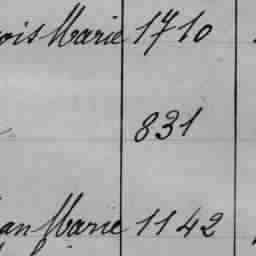 ois Marie 1710
831
an Marie 1142